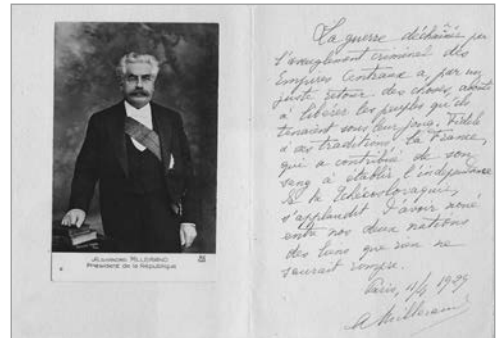 ALEXANDRE MILLERAND
Président de la République
La guerre déchaînée par
l'aveuglement criminel des
Empires Centraux a, par un
juste retour des choses, abouti
à libérer les peuples qu'ils
tenaient sous leur joug. Fidèle
à ses traditions, la France,
qui a contribué de son
sang à établir l'indépendance
de la Tchécoslovaquie,
s'applaudit d'avoir noué
entre nos deux nations
des liens que rien ne
saurait rompre.
Paris, 11/4 1929
A Millerand